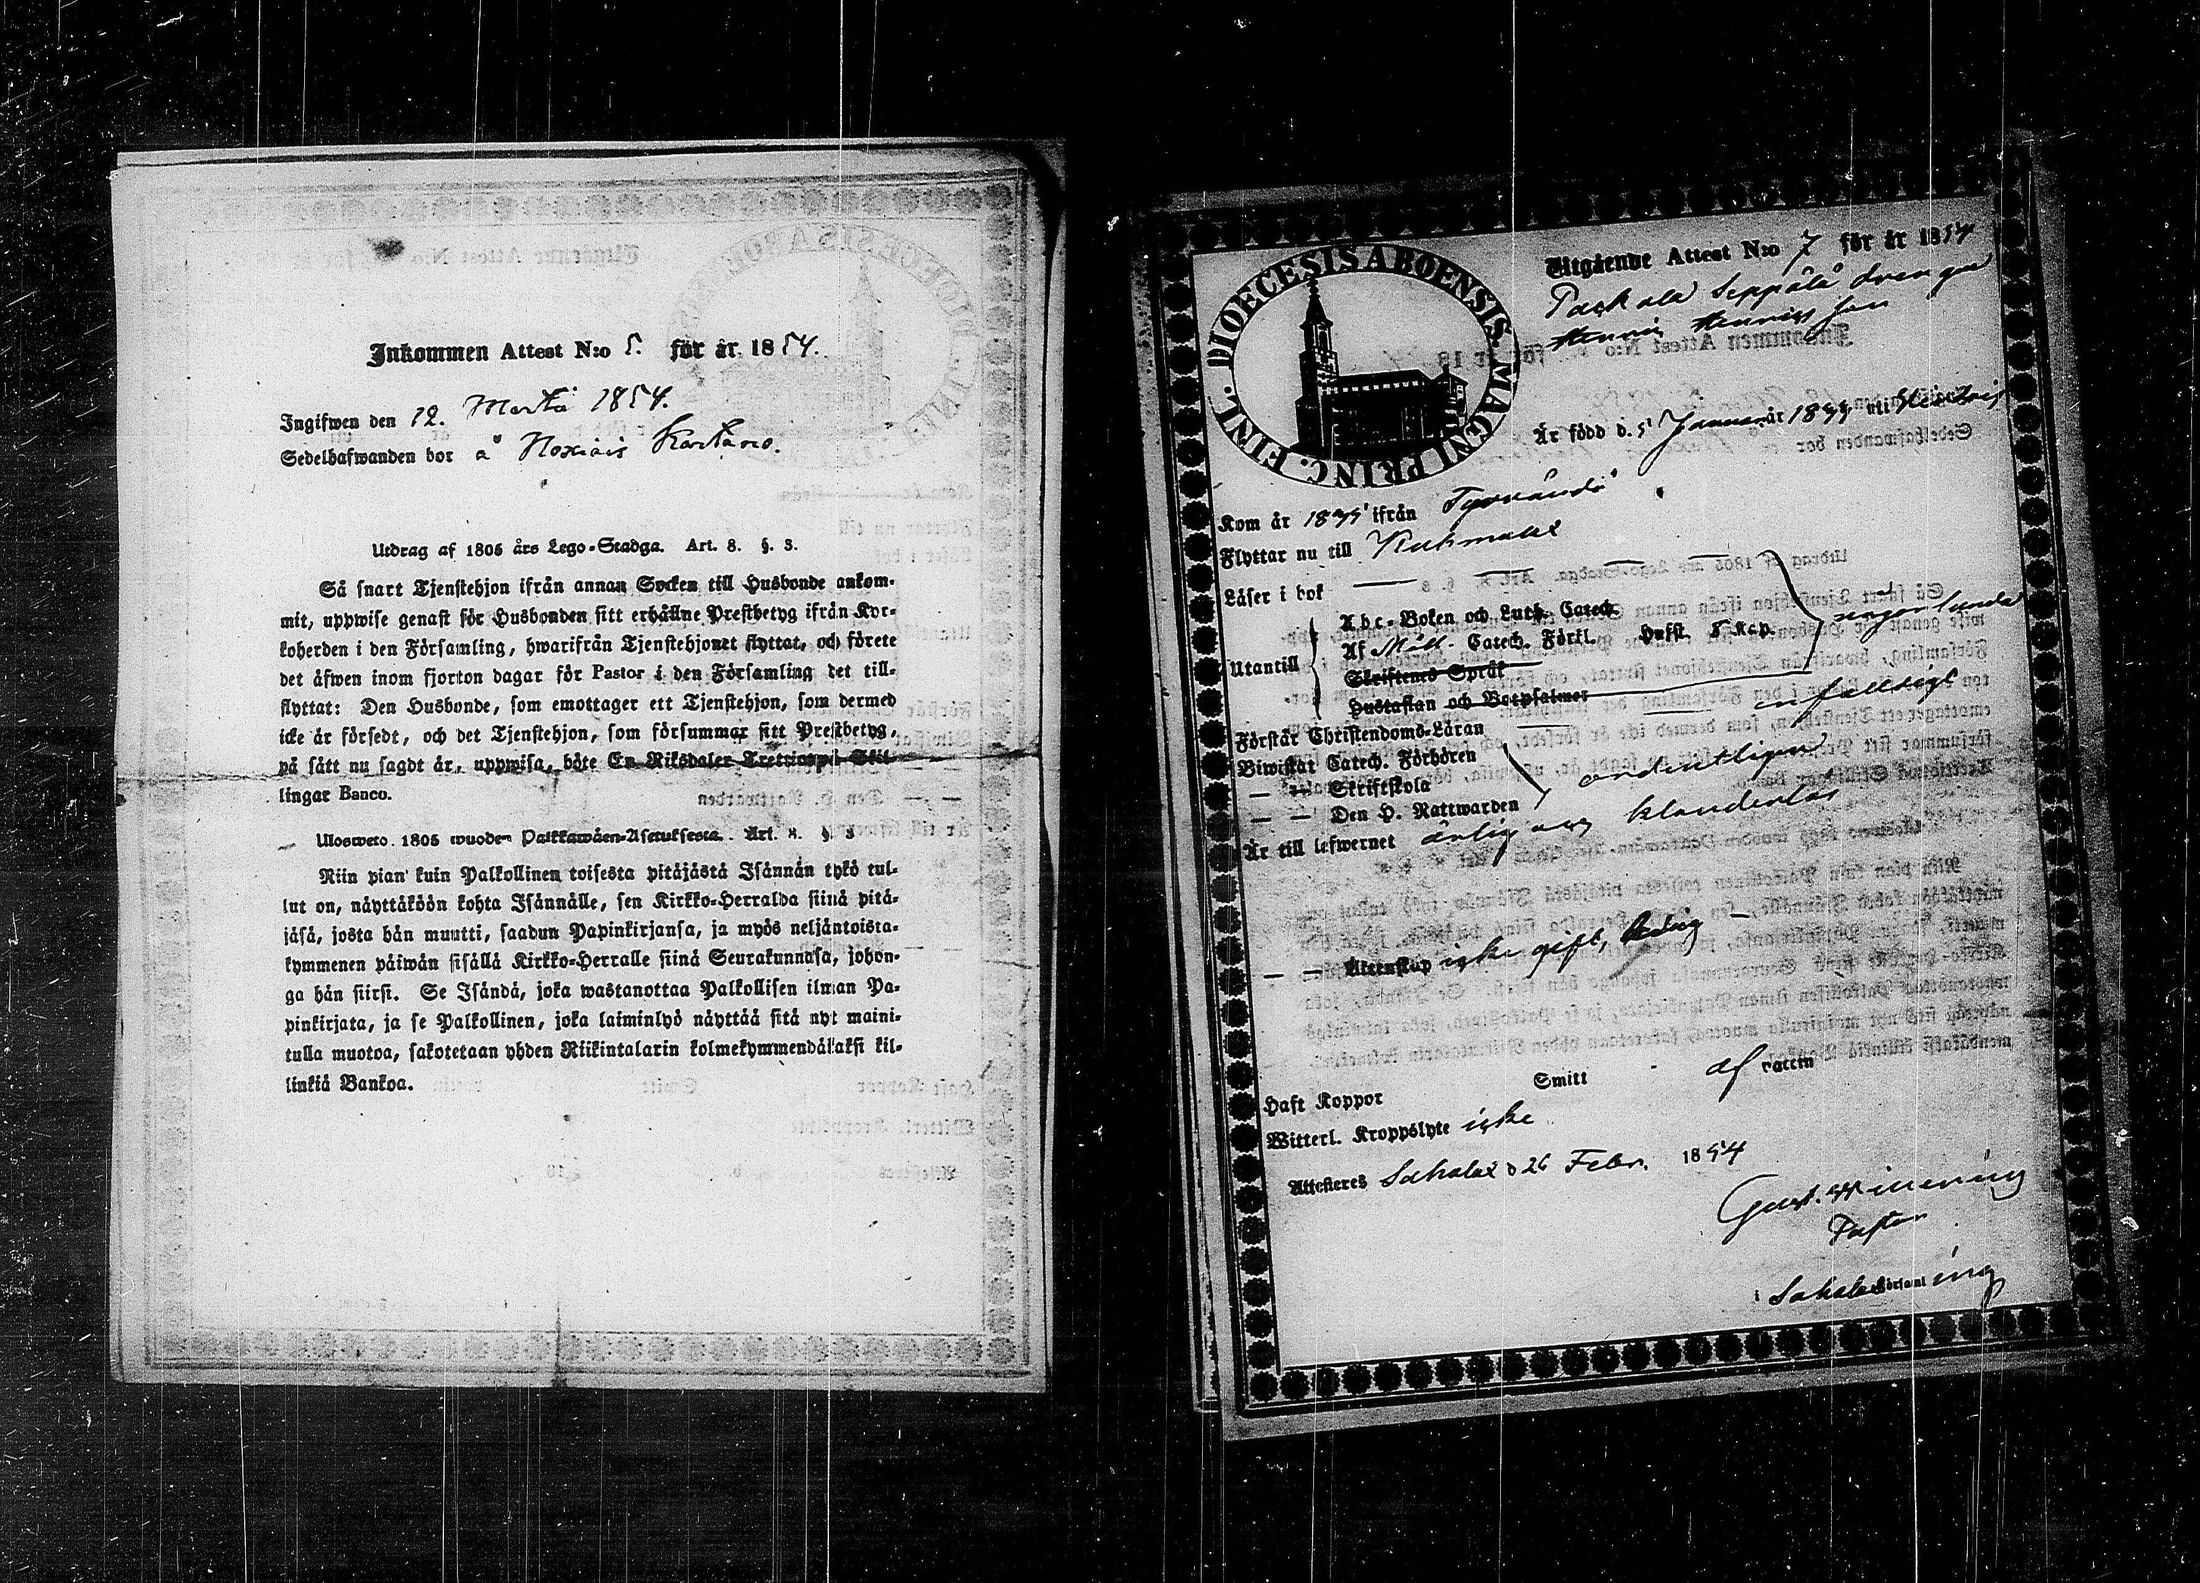 Inkommen Attest N:o 5. för år 1854.
Ingifwen den 12. Martii 1854.
Sedelhafwanden bor å
Utdrag af 1805 års Lego-Stadga. Art. 8. §. 3.
Så snart Tjenstehjon ifrån annan Socken till Husbonde ankom-
mit, uppwise genast för Husbonden sitt erhållne Prestbetyg ifrån Kyr-
koherden i den Församling, hwarifrån Tjenstehjonet flyttat, och förete
det åfwen inom fjorton dagar för Pastor i den Församling det till-
flyttat: Den Husbonde, som emottager ett Tjenstehjon, som dermed
icke är försedt, och det Tjenstehjon, som försummar sitt Prestbetyg,
på sätt nu sagdt är, uppwisa, böte En Riksdaler Tretriotvå Skil-
lingar Banco.
Ulosweto 1805 wuoden Palkkawäen-Asetuksesta. Art. 8. § 3
Niin pian kuin Palkollinen toisesta pitäjästä Isännän tykö tul-
lut on, näyttäköön kohta Isännälle, sen Kirkko-Herralda siinä pitä-
jäsä, josta hän muutti, saadun Papinkirjansa, ja myös neljäntoista-
kymmenen päiwän sisällä Kirkko-Herralle siinä Seurakunnasa, johon-
ga hän siirsi. Se Isändä, joka wastanottaa Palkollisen ilman Pa-
pinkirjata, ja se Palkollinen, joka laiminlyö näyttää sitä nyt maini-
tulla muotoa, sakotetaan yhden Riikintalarin kolmekymmendäkaksi kil-
linkiä Bankoa.
DIOECESIS ABOENSIS MAGNI PRINC. FINL.
Utgående Attest N:o 7 för år 1854
Seppälä drengen
Henric Henricsson
Är född d. 5 Januar år 18
Kom år 18 ifrån Tyrvändö
Flyttar nu till Kuhmalax
Läser i bok
Abc-Boken och Luth. Catech.
Utantill
Af Möll. Catech. Förkl. Husst. 5 Kap. någorlunda
Skriftenes Språk
Hustaflan och Botpsalmer
Förstår Christendoms-Läran enfaldigt
Biwistar Catech. Förhören
— — Skriftskola ordentligen
— — Den H. Nattwarden
Är till lefwernet ärlig och klanderlös
— — Äktenskap icke gift, ledig —
Haft Koppor Smitt af vaccin
Witterl. Kroppslyte icke
Attesteres Sahalax d 26 Febr. 1854
Gust.
Pastor
i Sahalax Församling